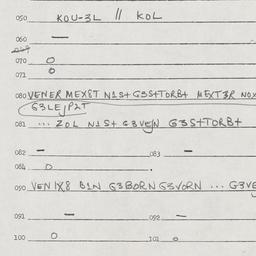 050 KOU-3L // KOL
060 —
070 O
071 O
080 VENER MEX8T N1S+ G3S+TORB+ MEXT3R NOX
G3LEJP2T
081 ... ZOL N1S+ G3VEJN G3S+TORB+
082 — 083 —
084 O
090 VEN IX8 B1N G3BORN G3VORN ... G3VE
091 — 092 —
100 O 101 O